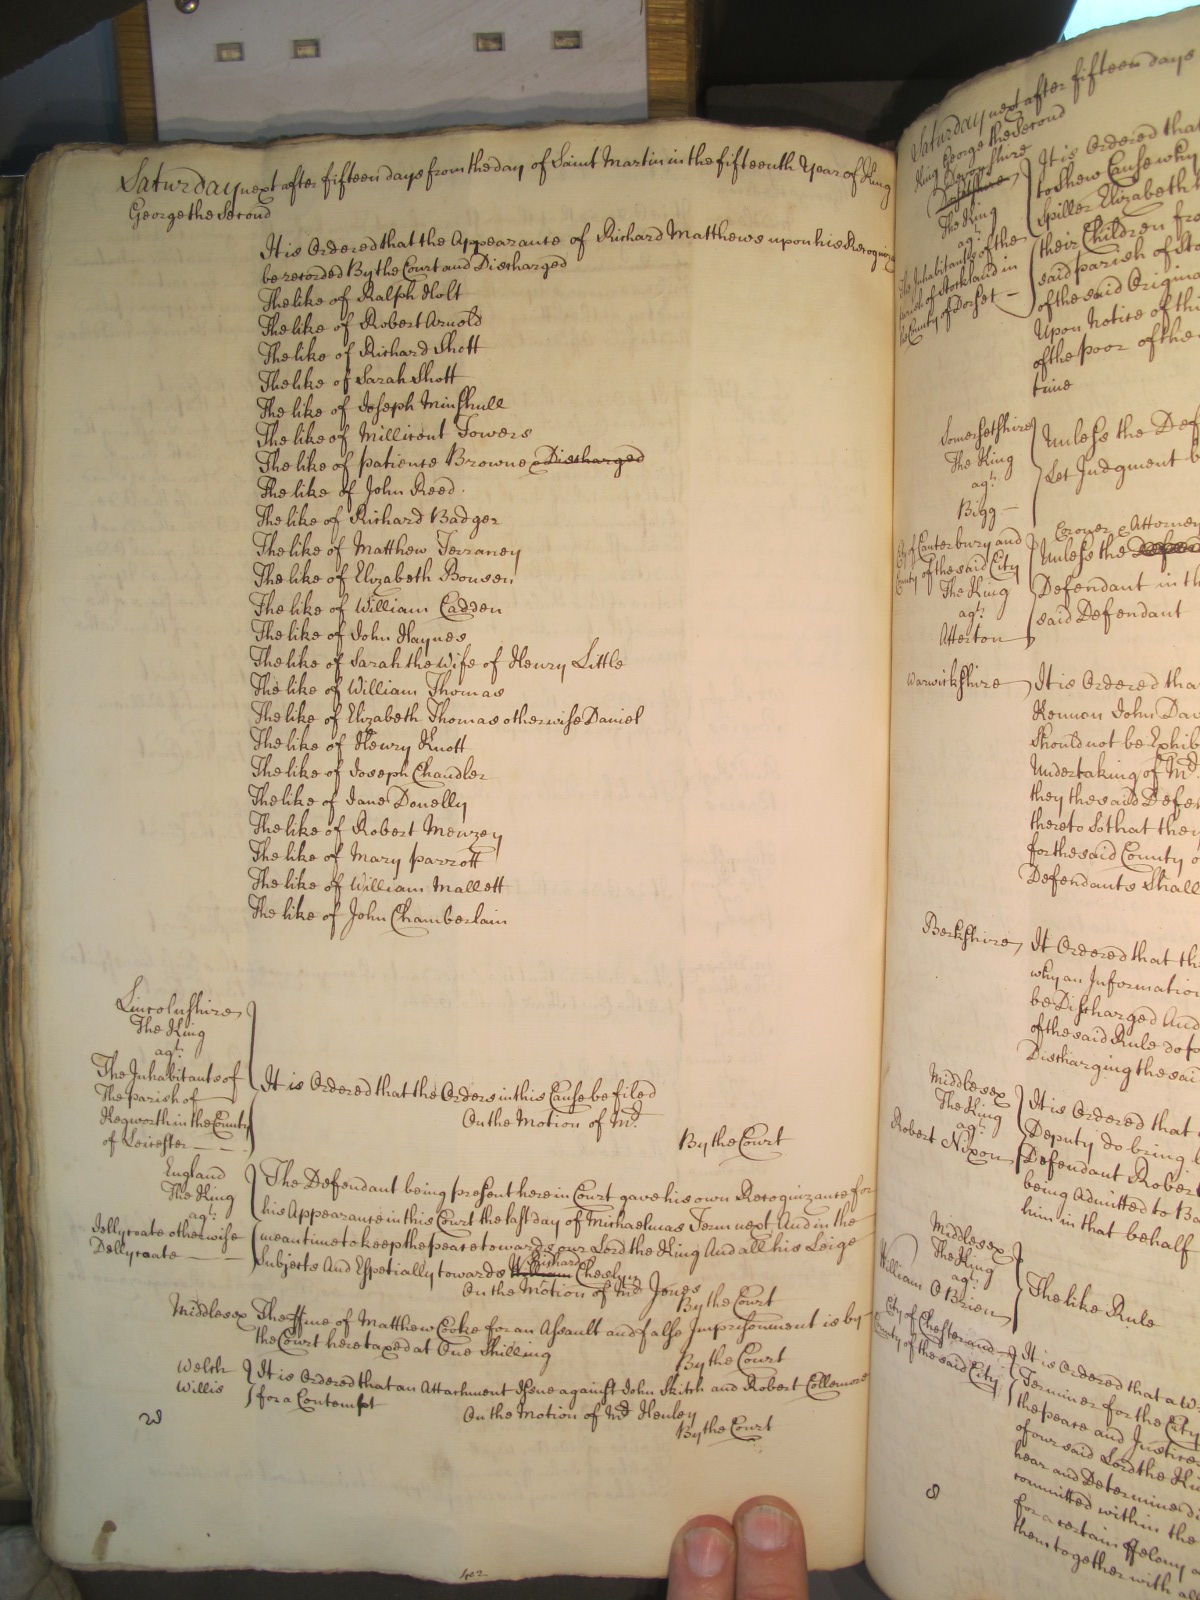 Saturday next after fifteen days from the day of Saint Martin in the fifteenth Year of King
George the Second
It is Ordered that the Appearance of Richard Matthews upon his Recogniz
be recorded By the Court and Discharged
The like of Ralph Holt
The like of Robert Arnold
The like of Richard Shott
The like of Sarah Shott
The like of Joseph Minshull
The like of Millicent Towers
The like of patience Browne & Discharged
The like of John Reed
The like of Richard Badger
The like of Matthew Terraney
The like of Elizabeth Bowsen
The like of William Cadden
The like of John Haynes
The like of Sarah the Wife of Henry Little
The like of William Thomas
The like of Elizabeth Thomas otherwise Daniel
The like of Henry Knott
The like of Joseph Chandler
The like of Jane Donelly
The like of Robert Menzey
The like of Mary parrott
The like of William Mallett
The like of John Chamberlain
Lincolnshire
The King
agt.
The Inhabitants of
The parish of
Kegworth in the County
of Leicester
It is Ordered that the Orders in this Cause be filed
On the Motion of Mr.
By the Court
England
The King
agt.
Dellycoate otherwise
Dellycoate
The Defendant being present here in Court gave his own Recognizance for
his Appearance in this Court the last day of Michaelmas Term next And in the
meantime to keep the peace towards our Lord the King And all his Leige
Richard
Subjects And Especially towards William Chesly
On the Motion of Mr. Jones
By the Court
Middlesex The ffine of Matthew Cooke for an Assault and false Imprisonment is by
the Court here taxed at One Shilling
By the Court
Welch
Willis
It is Ordered that an Attachment Issue against John Skitch and Robert Collemore
for a Contempt
On the Motion of Mr. Henley
By the Court
402
Saturday next after fifteen days
King George the Second
Devonshire
The King
agt.
The Inhabitants of the
parish of Stockland in
the County of Dorset
It is Ordered that
to shew Cause why
Spiller Elizabeth
their Children fro
said parish of Sto
of the said Origina
Upon Notice of thi
of the poor of the
time
Somersetshire
The King
agt.
Bigg
Unless the Def
Let Judgment b
City of Canterbury and
County of the said City
The King
agt.
Atterton
Coroner & Attorney
Unless the
Defendant in th
said Defendant
Warwickshire
It is Ordered tha
Kennon John Dav
Should not be Exhib
Undertaking of Mr.
they the said Defen
thereto So that they
for the said County o
Defendants Shall
Berkshire
It Ordered that th
why an Information
be Discharged And
of the said Rule do fo
Discharging the sai
Middlesex
The King
agt.
Robert Nixon
It is Ordered that
Deputy do bring b
Defendant Robert
being Admitted to Ba
him in that behalf
Middlesex
The King
agt.
William O Brien
The like Rule
City of Chester and
County of the said City
It is Ordered that a W
Terminer for the City
the peace and Justices
of our said Lord the Ki
hear and Determine di
committed within the
for a certain ffelony a
them together with al